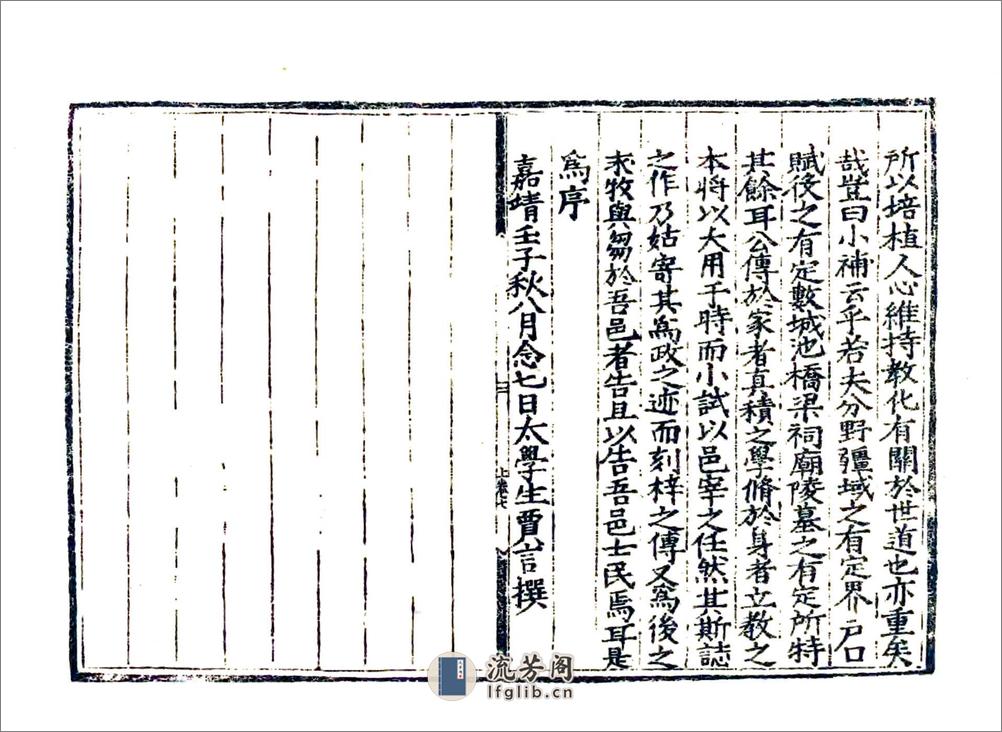 所以培植人心維持教化有關於世道也亦重矣
哉豈曰小補云乎若夫分野疆域之有定界户口
賦役之有定數城池橋梁祠廟陵墓之有定所特
其餘耳公傳於家者真積之學脩於身者立教之
本將以大用于時而小試以邑宰之任然其斯誌
之作乃姑寄其爲政之迹而刻梓之傳又爲後之
求牧與芻於吾邑者告且以告吾邑士民焉耳是
爲序
嘉靖壬子秋八月念七日太學生賈言撰
三
流芳阁
lfglib.cn